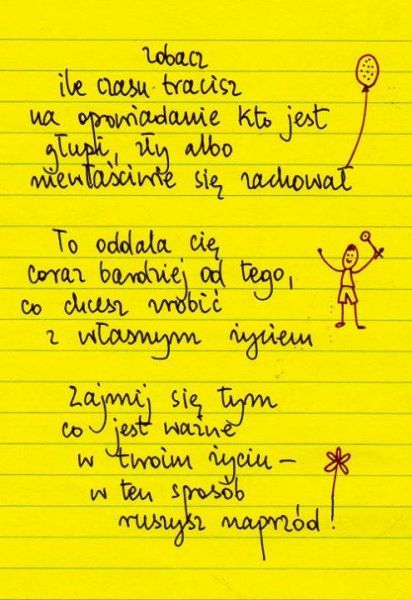 zobacz
ile czasu tracisz
na opowiadanie kto jest
głupi, zły albo
niewłaściwie się zachował
To oddala cię
coraz bardziej od tego,
co chcesz zrobić
z własnym życiem
Zajmij się tym
co jest ważne
w twoim życiu –
w ten sposób
ruszysz naprzód!